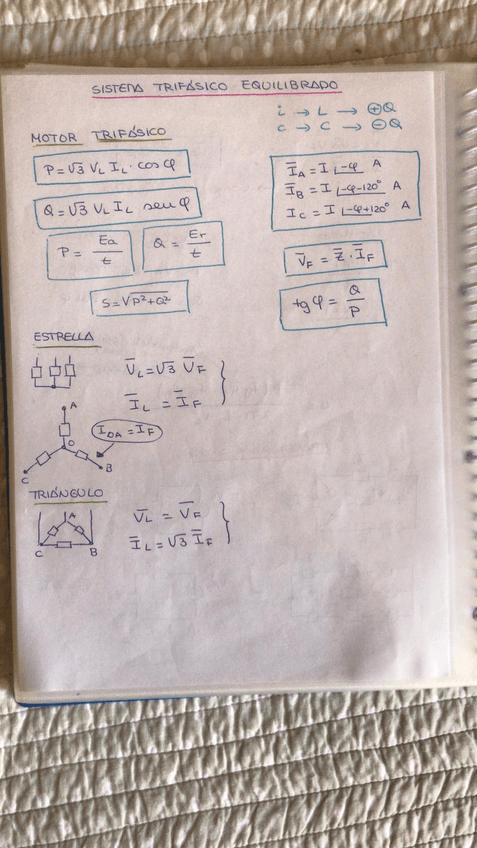 SISTEMA TRIFÁSICO EQUILIBRADO
i → L → ⊕Q
c → C → ⊖Q
MOTOR TRIFÁSICO
P = √3 V_L I_L · cos φ
Q = √3 V_L I_L sen φ
P = Ea/t
Q = Er/t
S = √P²+Q²
I̅_A = I ∠-φ A
I̅_B = I ∠-φ-120° A
I_C = I ∠-φ+120° A
V̅_F = Z̅ · I̅_F
tg φ = Q/P
ESTRELLA
V̅_L = √3 V̅_F
I̅_L = I̅_F
A
I_OA = I_F
O
C
B
TRIÁNGULO
A
C B
V̅_L = V̅_F
I̅_L = √3 I̅_F